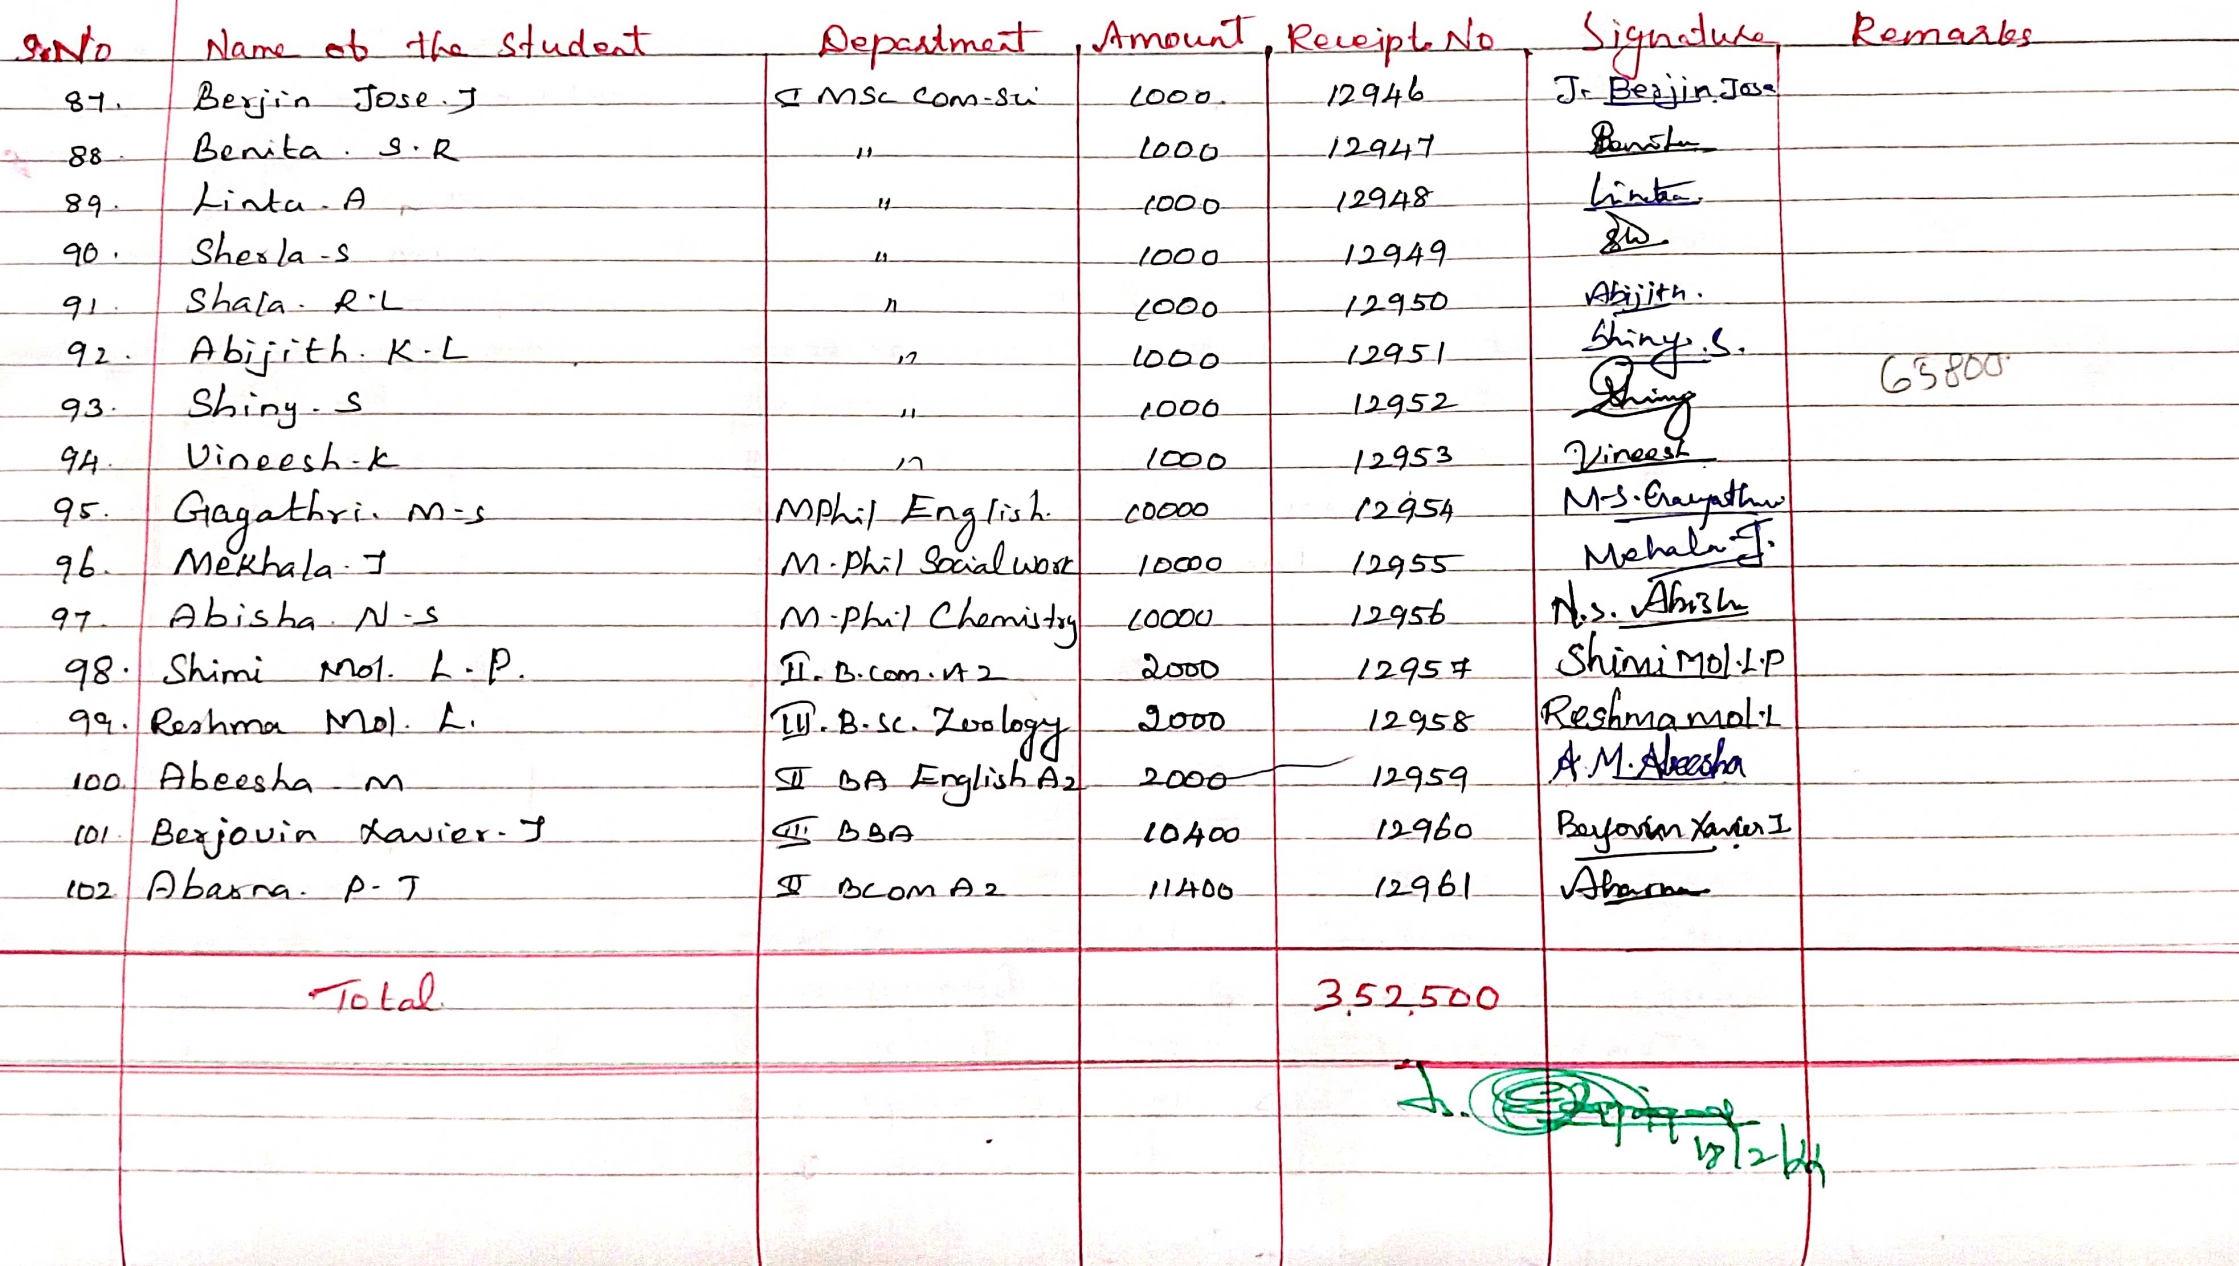 S.No Name of the Student Department Amount Receipt No Signature Remarks
87. Berjin Jose. J I MSc Com-Sci 1000. 12946 J. Berjin Jose
88. Benita. S.R " 1000 12947 Benita
89. Linta. A " 1000 12948 Linta
90. Sherla-S " 1000 12949
91. Shala. R.L " 1000 12950 Abijith.
92. Abijith. K.L " 1000 12951 Shiny. S.
63800
93. Shiny. S " 1000 12952 Shiny
94. Vineesh-K " 1000 12953 Vineesh
95. Gagathri. M-S MPhil English. 10000 12954 M-S. Gayathri
96. Mekhala. J M.Phil Social work 10000 12955 Mehala J.
97. Abisha. N-S M.Phil Chemistry 10000 12956 N.S. Abisha
98. Shimi Mol. L.P. II. B.com. A2 2000 12957 Shimi Mol.L.P
99. Reshma Mol. L. III. B.Sc. Zoology 2000 12958 Reshma mol.L
100. Abeesha M II BA English A2 2000 12959 A.M. Abeesha
101. Berjovin Xavier-J III BBA 10400 12960 Berjovin Xavier J
102 Abarna. P-J II BCom A2 11400 12961 Abarna
Total 3,52,500